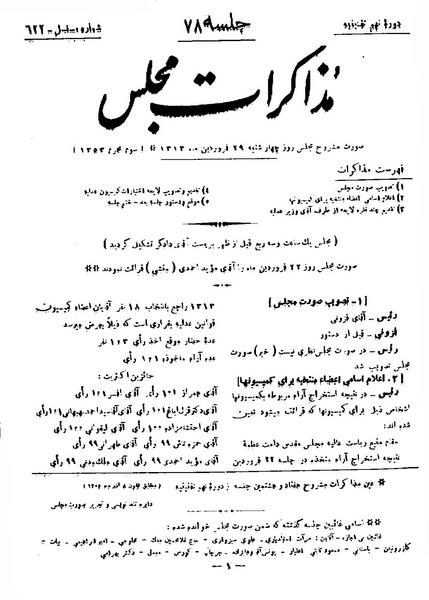 دورهٔ نهم تقنینیه
جلسه ۷۸
شماره مسلسل - ۶۲۲
مذاکرات مجلس
صورت مشروح مجلس روز چهارشنبه ۲۹ فروردین ماه ۱۳۱۳ * (سوم محرم ۱۳۵۳)
فهرست مذاکرات
۱) تصویب صورت مجلس
۲) اعلام اسامی اعضاء منتخبه برای کمیسیونها
۳) تقدیم چند فقره لایحه از طرف آقای وزیر عدلیه
۴) تقدیم و تصویب لایحه اختیارات کمیسیون عدلیه
۵) موقع و دستور جلسه بعد - ختم جلسه
(مجلس یک ساعت و سه ربع قبل از ظهر بریاست آقای دادگر تشکیل گردید)
صورت مجلس روز ۲۲ فروردین ماه را آقای مؤید احمدی (منشی) قرائت نمودند **
[۱- تصویب صورت مجلس]
رئیس - آقای فزونی
فزونی - قبل از دستور
رئیس - در صورت مجلس نظری نیست (خیر) صورت
مجلس تصویب شد
[۲- اعلام اسامی اعضاء منتخبه برای کمیسیونها]
رئیس - نتیجه استخراج آراء مربوطه بکمیسیونها
اشخاص ذیل برای کمیسیونها که قرائت میشود تعین
شده اند:
مقام منیع ریاست عالیه مجلس مقدس دامت عظمة
نتیجه استخراج آراء متخذه در جلسه ۲۲ فروردین
۱۳۱۳ راجع بانتخاب ۱۸ نفر آقایان اعضاء کمیسیون
قوانین عدلیه بقراری است که ذیلاً بعرض میرسد
عدهٔ حضار موقع اخذ رأی ۱۰۳ نفر
عده آراء مأخوذه ۱۰۱ رأی
حائزین اکثریت:
آقای افسر ۱۰۱ رأی
آقای دکتر قزل ایاغ ۱۰۱ رأی آقای آقا سید احمد بهبهانی ۱۰۱ رأی
آقای احتشام زاده ۱۰۰ رأی آقای لیقوانی ۱۰۰ رأی
آقای حمزه تاش ۹۹ رأی آقای طهرانی ۹۹ رأی
آقای مؤید احمدی ۹۹ رأی آقای ملک مدنی ۹۹ رأی
* عین مذاکرات مشروح هفتاد و هشتمین جلسه از دوره نهم تقنینیه
دایره تند نویسی و تحریر صورت مجلس
** اسامی غائبین جلسه گذشته که ضمن صورت مجلس خوانده شده:
غائبین بی اجازه - آقایان: مرآت اسفندیاری - حاج غلامحسین ملک - بیات -
کازرونیان - یونس آقا وهاب زاده - دکتر بهرامی
- ۱ -